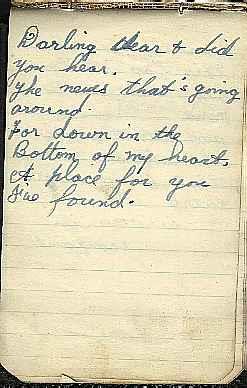 Darling dear & did
you hear.
The news that's going
around.
For down in the
Bottom of my heart,
A place for you
I've found.